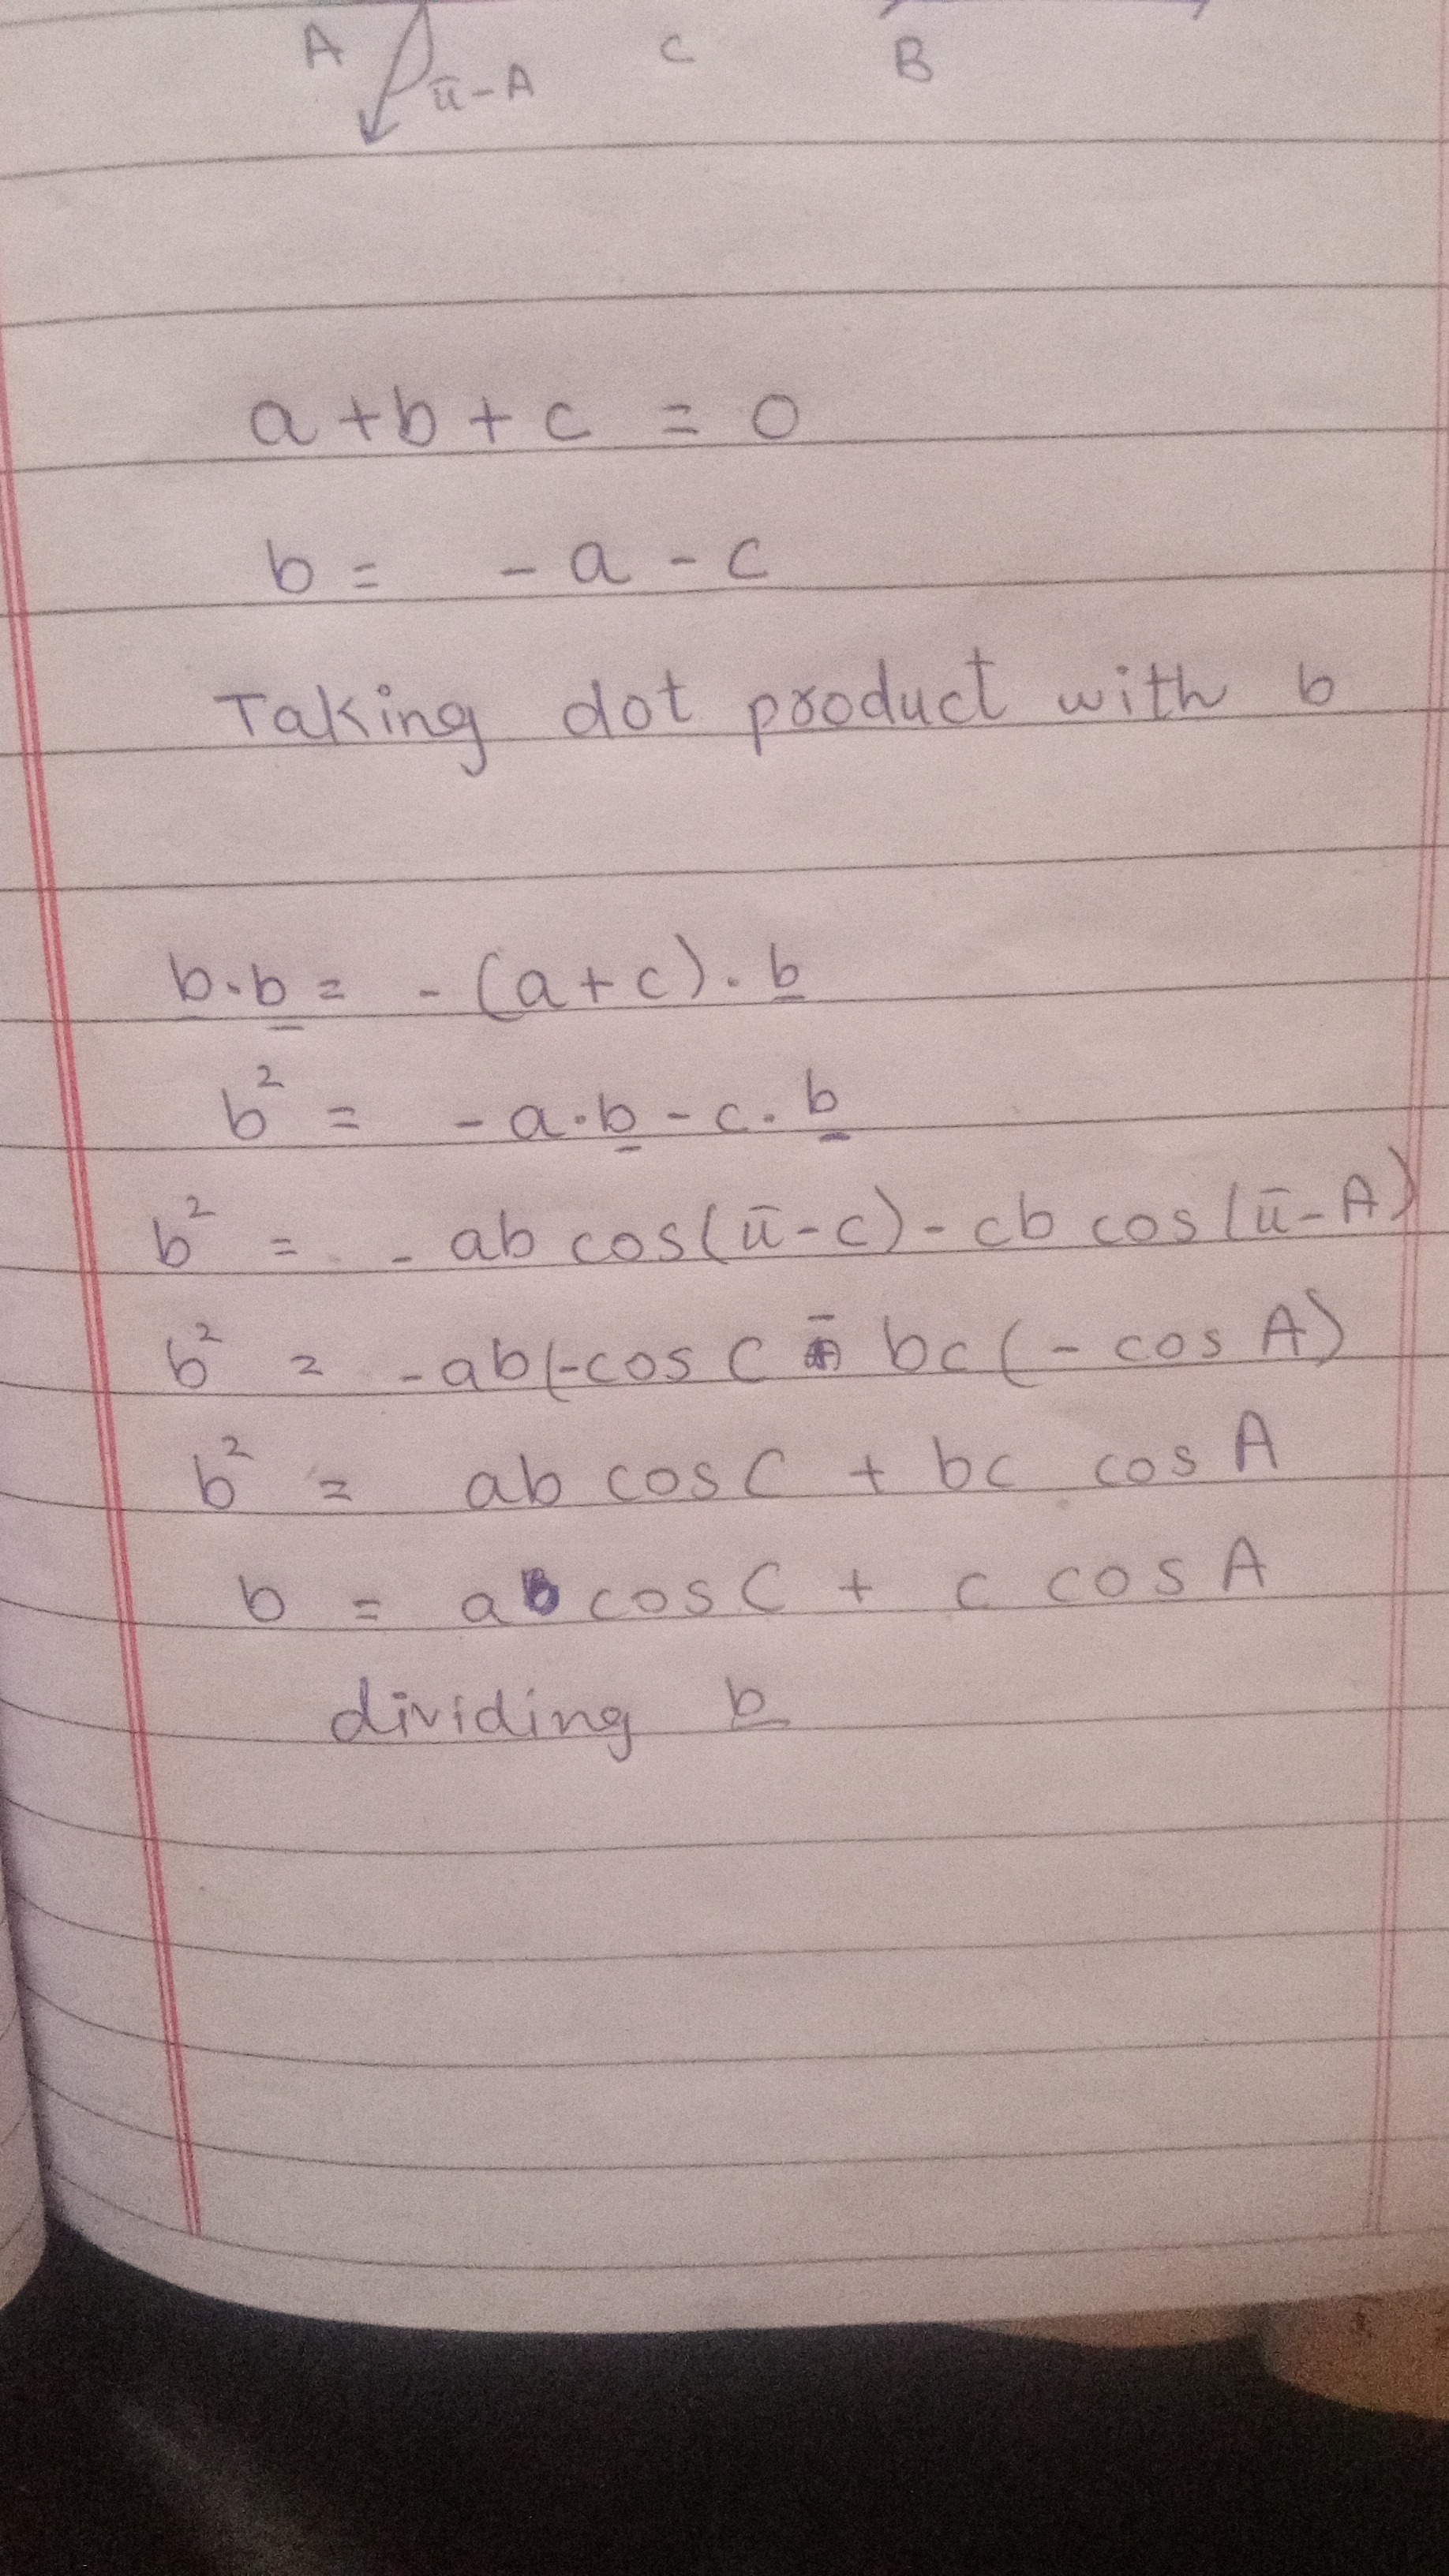 A C B
π-A
a + b + c = 0
b = - a - c
Taking dot product with b
b·b = - (a + c) · b
b² = - a·b - c·b
b² = - ab cos(π - c) - cb cos(π - A)
b² = - ab(-cos C - bc(- cos A)
b² = ab cos C + bc cos A
b = a cos C + c cos A
dividing b